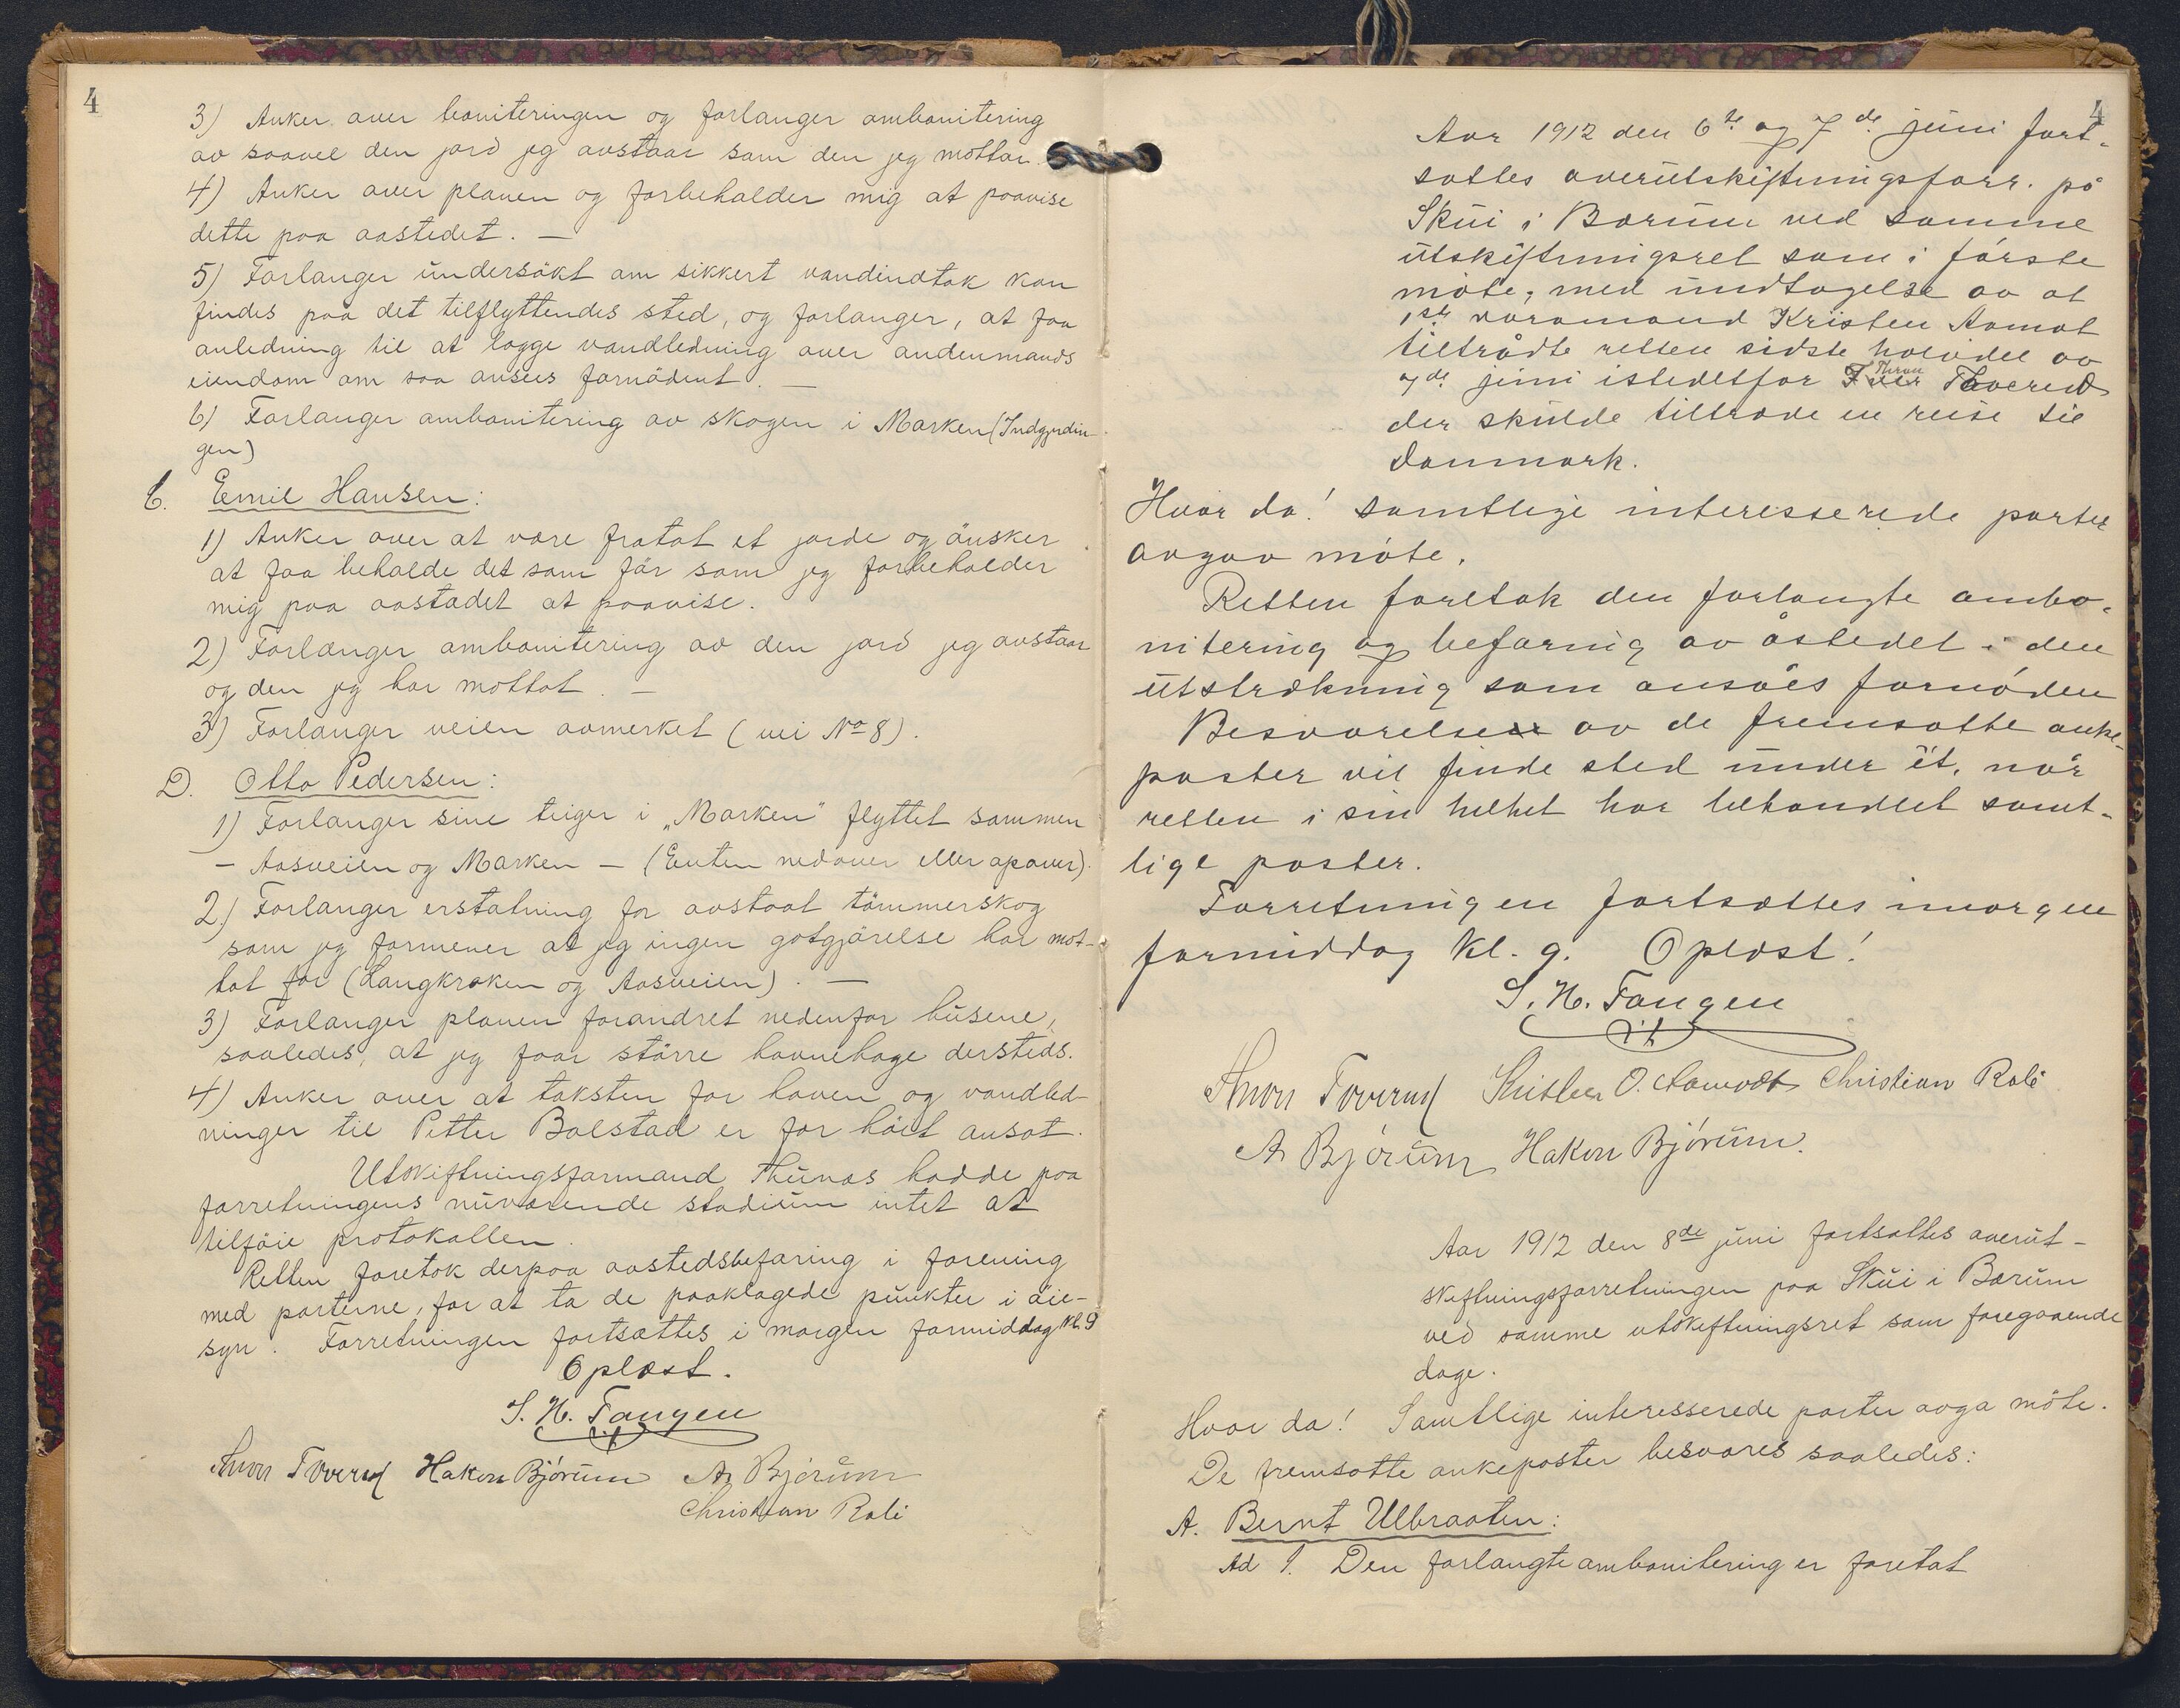 4
3) Anker over boniteringen og forlanger ombonitering
av saavel den jord jeg avstaar som den jeg mottar.
4) Anker over planen og forbeholder mig at paavise
dette paa aastedet. —
5) Forlanger undersökt om sikkert vandindtak kan
findes paa det tilflyttendes sted, og forlanger, at faa
anledning til at lægge vandledning over andenmands
eiendom om saa ansees fornödent. —
6) Forlanger ombonitering av skogen i Marken (Indgjerdin-
gen)
C. Emil Hansen:
1) Anker over at være fratat et jorde og önsker
at faa beholde det som för som jeg forbeholder
mig paa aastedet at paavise.
2) Forlanger ombonitering av den jord jeg avstaar
og den jeg har mottat. —
3) Forlanger veien avmerket (vei No 8).
D. Otto Pedersen:
1) Forlanger sine teiger i „Marken" flyttet sammen
— Aasveien og Marken — (Enten nedover eller opover).
2) Forlanger erstatning for avstaat tömmerskog
som jeg formener at jeg ingen gotgjörelse har mot-
tat for (Langkroken og Aasveien). —
3) Forlanger planen forandret nedenfor husene,
saaledes, at jeg faar större havnehage dersteds.
4) Anker over at taksten for haven og vandled-
ninger til Petter Bolstad er for höit ansat.
Utskiftningsformand Thunas hadde paa
forretningens nuværende stadium intet at
tilföie protokollen.
Retten foretok derpaa aastedsbefaring i forening
med parterne, for at ta de paaklagede punkter i öie-
syn. Forretningen fortsættes i morgen formiddag kl. 9
Oplæst.
S. H. Tangen
Thron Toverud Hakon Bjørum A. Bjørum
Christian Roli
4
Aar 1912 den 6te og 7de juni fort-
sattes overutskiftningsforr. på
Skui i Bærum ved samme
utskiftningsret som i første
møte, med undtagelse av at
1ste varamand Kristen Aamot
tiltrådte retten sidste halvdel av
7de juni istedetfor Thron Toverud
der skulde tiltræde en reise til
Danmark.
Hvor da! samtlige interesserede parter
avgav møte.
Retten foretok den forlangte ombo-
nitering og befaring av åstedet i den
utstrækning som ansåes fornøden
Besvarelse av de fremsatte anke-
poster vil finde sted under ét, når
retten i sin helhet har behandlet samt-
lige poster.
Forretningen fortsættes imorgen
formiddag kl. 9. Oplæst!
S. H. Tangen
Thron Toverud Kristen O. Aamodt Christian Roli
A Bjørum Hakon Bjørum.
Aar 1912 den 8de juni fortsattes overut-
skiftningsforretningen paa Skui i Bærum
ved samme utskiftningsret som foregaaende
dage.
Hvor da! Samtlige interesserede parter avga möte.
De fremsatte ankeposter besvares saaledes:
A. Bernt Ulbraaten:
Ad 1. Den forlangte ombonitering er foretat